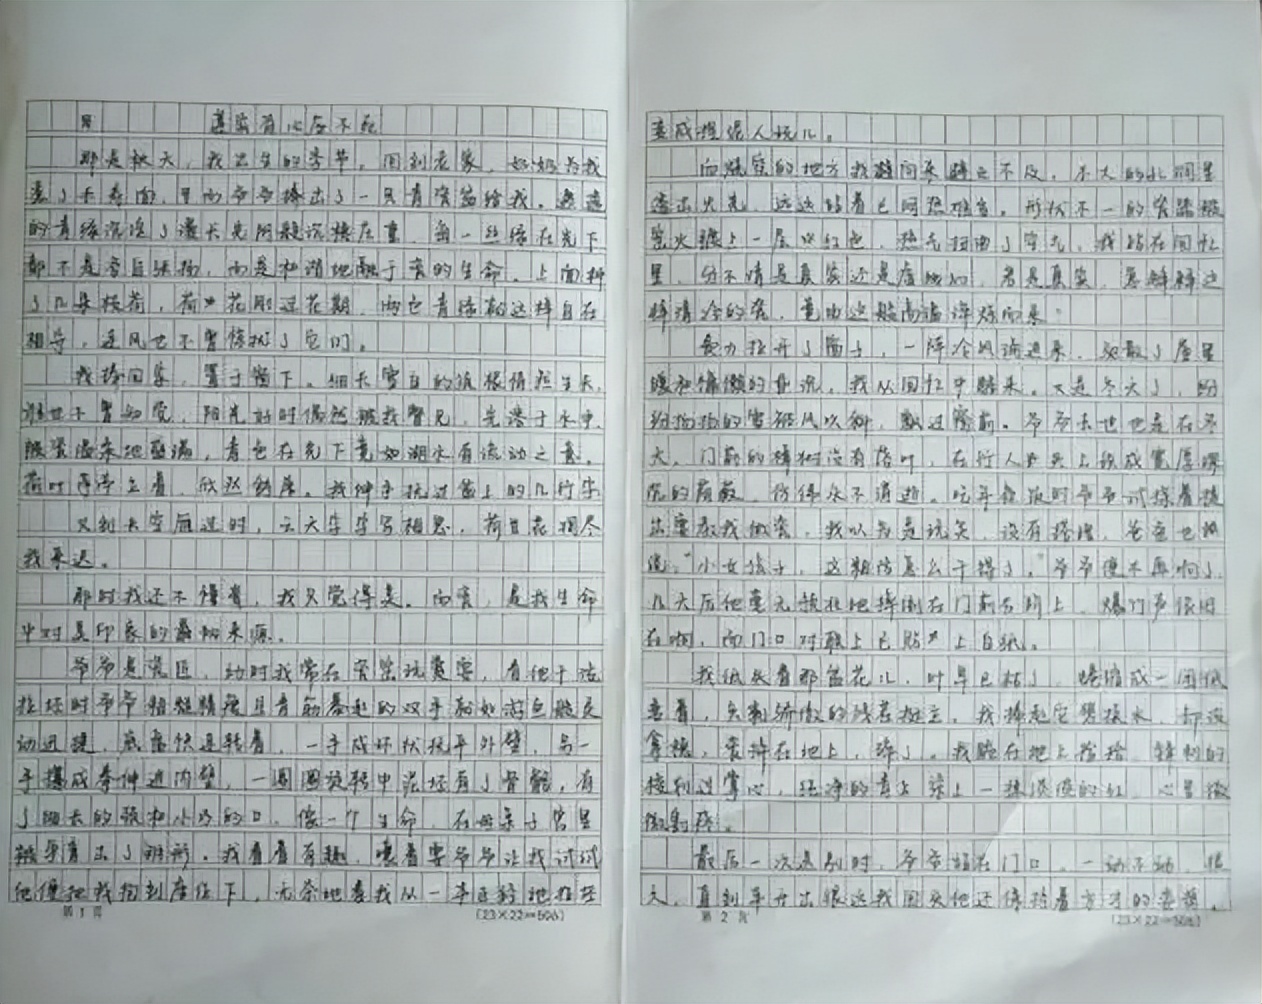 那是秋天，我出生的季节。回到老家，奶奶为我
煮了长寿面，里面爷爷捧出了一只青瓷盆给我。
的青绿沉淀了漫长光阴般沉接庄重，每一丝绿在光下
都不是夸耀张扬，而是和谐地融于瓷的生命。上面种
了几朵枝荷，荷花刚过花期，而它青绿都这样自在
相守，连风也不曾惊扰了它们。
我捧回家，置于窗下。细长雪白的须根悄然生长，
阳光好时偶然被我瞥见，光落于水中，
青色在光下竟如湖水有流动之意。
荷叶亭亭立着，我伸手抚过盆上的几行字
又到天空雁过时，云天字字写相思，荷自花凋尽
我来迟。
那时我还不懂瓷，我只觉得美。而瓷，是我生命
中对美印象的最初来源。
爷爷是瓷匠，幼时我常在窑里玩耍，看他干活
拉坯时爷爷精瘦且青筋暴起的双手都如游鱼般灵
动迅捷，底盘快速转着，一手成环状抚平外壁，另一
手攥成拳伸进内壁，一圈圈旋转中泥坯有了骨骼，有
了细长的颈和小巧的口，像一个生命，在母亲子宫里
被孕育出了雏形。我看着有趣，嚷着要爷爷让我试试
他便把我抱到座位下，无奈地看我从一本正经地拉坯
第1页
(23×22=506)
变成捏泥人玩儿。
而烧窑的地方我避之不及，不大的孔洞里
透出火光，远远站着已闷热难当。形状不一的瓷器被
窑火镀上一层火红色，热气扭曲了空气，我站在回忆
里，分不清是真实还是虚幻，若是真实，怎解释这
样清冷的瓷，竟由这般高温淬炼而来？
奋力拉开了窗子，一阵冷风涌进来，驱散了屋里
暖和慵懒的气流，我从回忆中醒来。又是冬天了，纷
纷扬扬的雪裹风以斜，飘过窗前。爷爷去世也是在冬
天，门前的樟树没有落叶，在行人头上织成宽厚深
沉的荫蔽，仿佛永不消逝。吃年夜饭时爷爷试探着提
出要教我做瓷，我以为是玩笑，没有搭理，爸爸也
说，“小女孩子，这粗活怎么干得了。”爷爷便不再响了，
几天后他毫无预兆地摔倒在门前石阶上，爆竹声依旧
在响，而门口对联上已贴上白纸。
我低头看那盆花儿，叶早已枯了，蜷缩成一团低
垂着，失却骄傲的残茎挺立。我捧起它想换水，却没
拿稳，瓷摔在地上，碎了。我跪在地上捡拾，锋利的
棱划过掌心，纯净的青上染上一抹淡淡的红，心里微
微刺疼。
最后一次送别时，爷爷站在门口，一动不动，很
久，直到车开出很远我回头他还保持着方才的姿势，
第2页
(23×22=506)